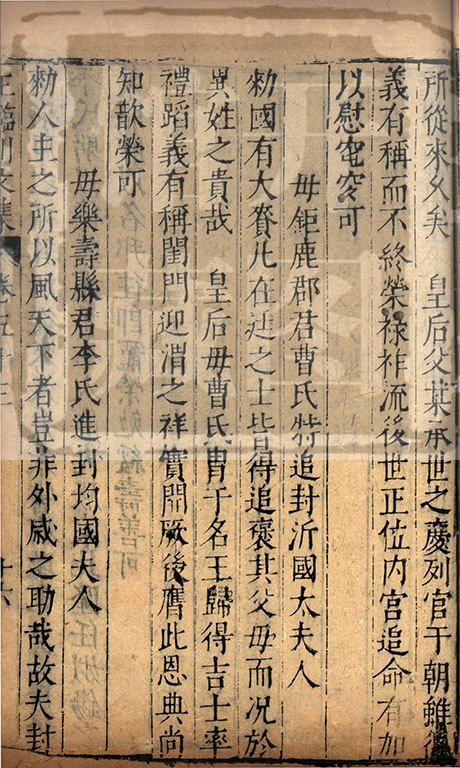 所從來久矣　皇后父某承世之慶列官于朝雖
義有稱而不終榮禄祚流後世正位内宫追命有加
以慰窀穸可
毋鉅鹿郡君曹氏特追封沂國太夫人
勑國有大賚凡在廷之士皆得追褒其父毋而况於
異姓之貴哉　皇后毋曹氏胄于名王歸得吉士率
禮蹈義有稱閨門迎渭之祥實開厥後膺此恩典尚
知歆榮可
毋樂壽縣君李氏進封均國夫人
勑人主之所以風天下者豈非外戚之助哉故夫封
王臨川文集　卷五十三　十六